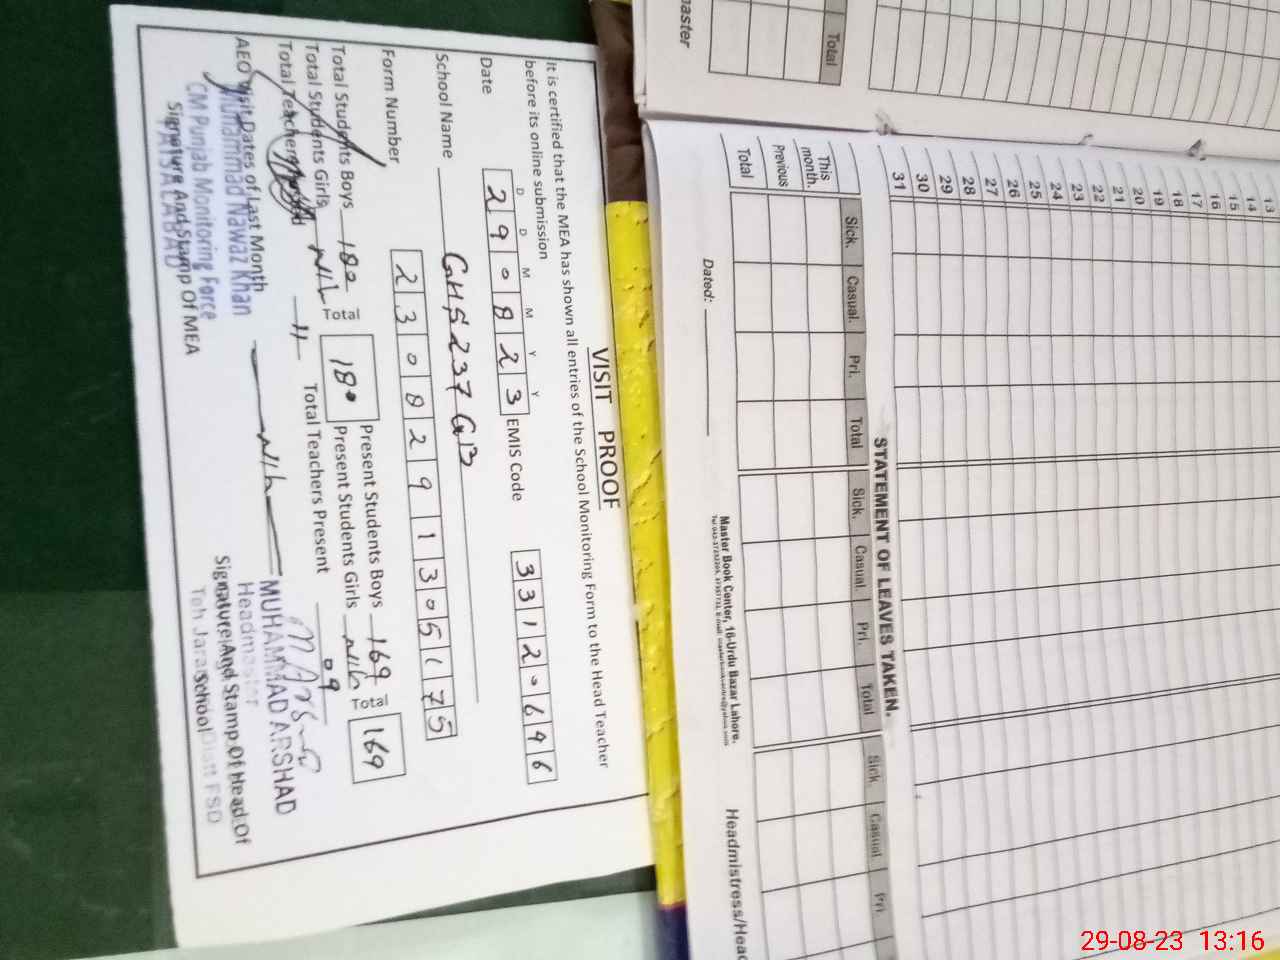 VISIT PROOF
It is certified that the MEA has shown all entries of the School Monitoring Form to the Head Teacher
before its online submission
D D M M Y Y
Date 290823 EMIS Code 33120646
School Name GHS 237 GB
Form Number 2308291305175
Total Students Boys 180 Total 180 Present Students Boys 169 Total 169
Total Students Girls NIL Present Students Girls Nil
Total Teachers 11 Total Teachers Present 09
AEO Visit Dates of Last Month Nil
Muhammad Nawaz Khan
CM Punjab Monitoring Force
FAISALABAD
Signature And Stamp Of MEA
MUHAMMAD ARSHAD
Headmaster
Signature And Stamp Of Head Of
School
master
Total
13
14
15
16
17
18
19
20
21
22
23
24
25
26
27
28
29
30
31
STATEMENT OF LEAVES TAKEN.
Sick. Casual. Pri. Total Sick. Casual. Pri. Total Sick. Casual. Pri.
This month.
Previous
Total
Dated:
Master Book Center, 16-Urdu Bazar Lahore.
Headmistress/Head
29-08-23 13:16